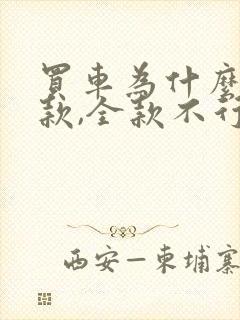 買車為什麼
款,全款不行
西安—柬埔寨